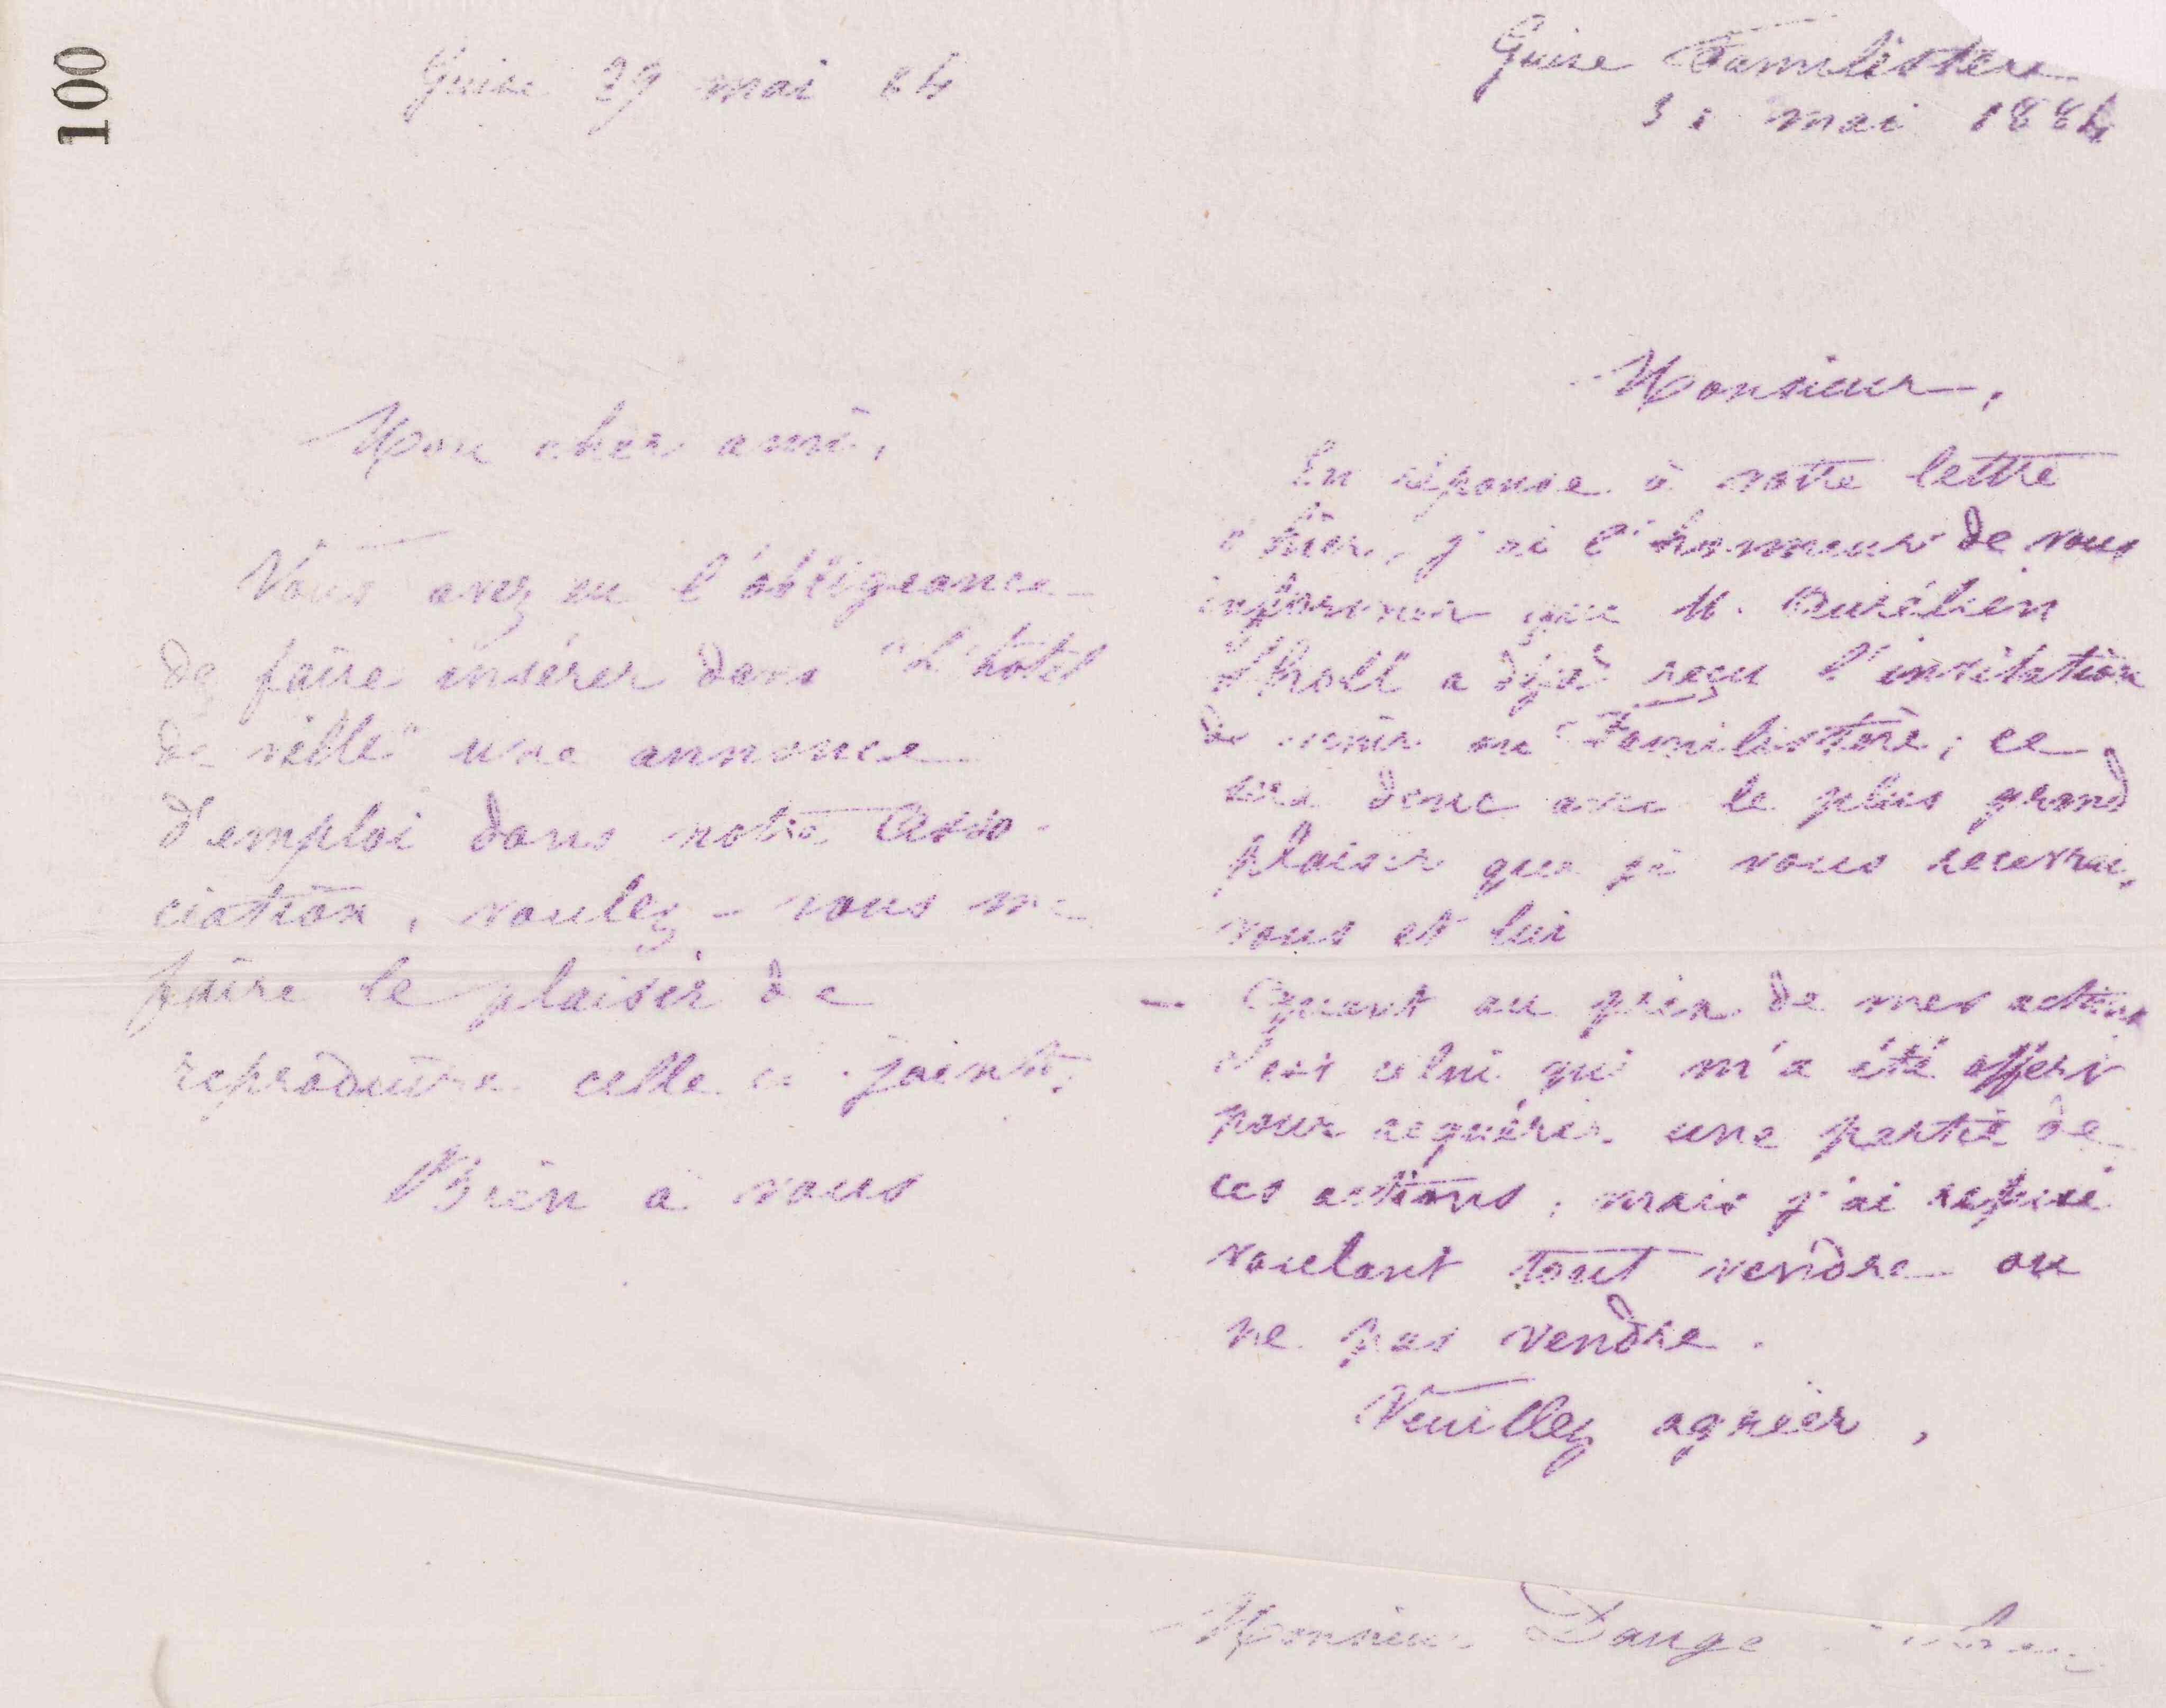 100
Guise 29 mai 84
Mon cher ami,
Vous avez eu l'obligeance
de faire insérer dans "L'hôtel
de ville" une annonce
d'emploi dans notre Asso-
ciation, voulez-vous me
faire le plaisir de
reproduire celle ci-jointe.
Bien à vous
Guise Familistère
31 mai 1884
Monsieur,
En réponse à votre lettre
d'hier, j'ai l'honneur de vous
informer que M. Aurélien
Scholl a déjà reçu l'invitation
de venir au Familistère; ce
sera donc avec le plus grand
plaisir que je vous recevrai,
vous et lui
- Quant au prix de mes actions
c'est celui qui m'a été offert
pour acquérir une partie de
ces actions; mais j'ai refusé
voulant tout vendre ou
ne pas vendre.
Veuillez agréer,
Monsieur Dauge